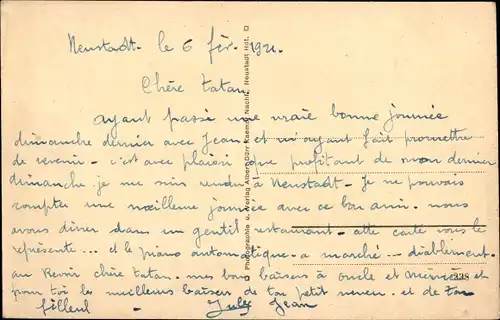 Neustadt. le 6 fév. 1921.
Chère tatan
ayant passé une vraie bonne journée
dimanche dernier avec Jean et m'ayant fait promettre
de revenir - c'est avec plaisir que profitant de mon dernier
dimanche je me suis rendu à Neustadt - Je ne pouvais
compter une meilleure journée avec ce bon ami. nous
avons dîner dans un gentil restaurant - cette carte vous le
représente... et le piano automatique a marché - diablement.
au revoir chère tatan. mes bons baisers à oncle et
pour toi les meilleurs baisers de ton petit neveu. et de ton
filleul Jules Jean
Photographie u. Verlag Albert Dürr Nachf., Neustadt
338